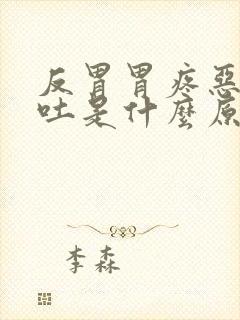 反胃胃疼惡
吐是什麼原
李森